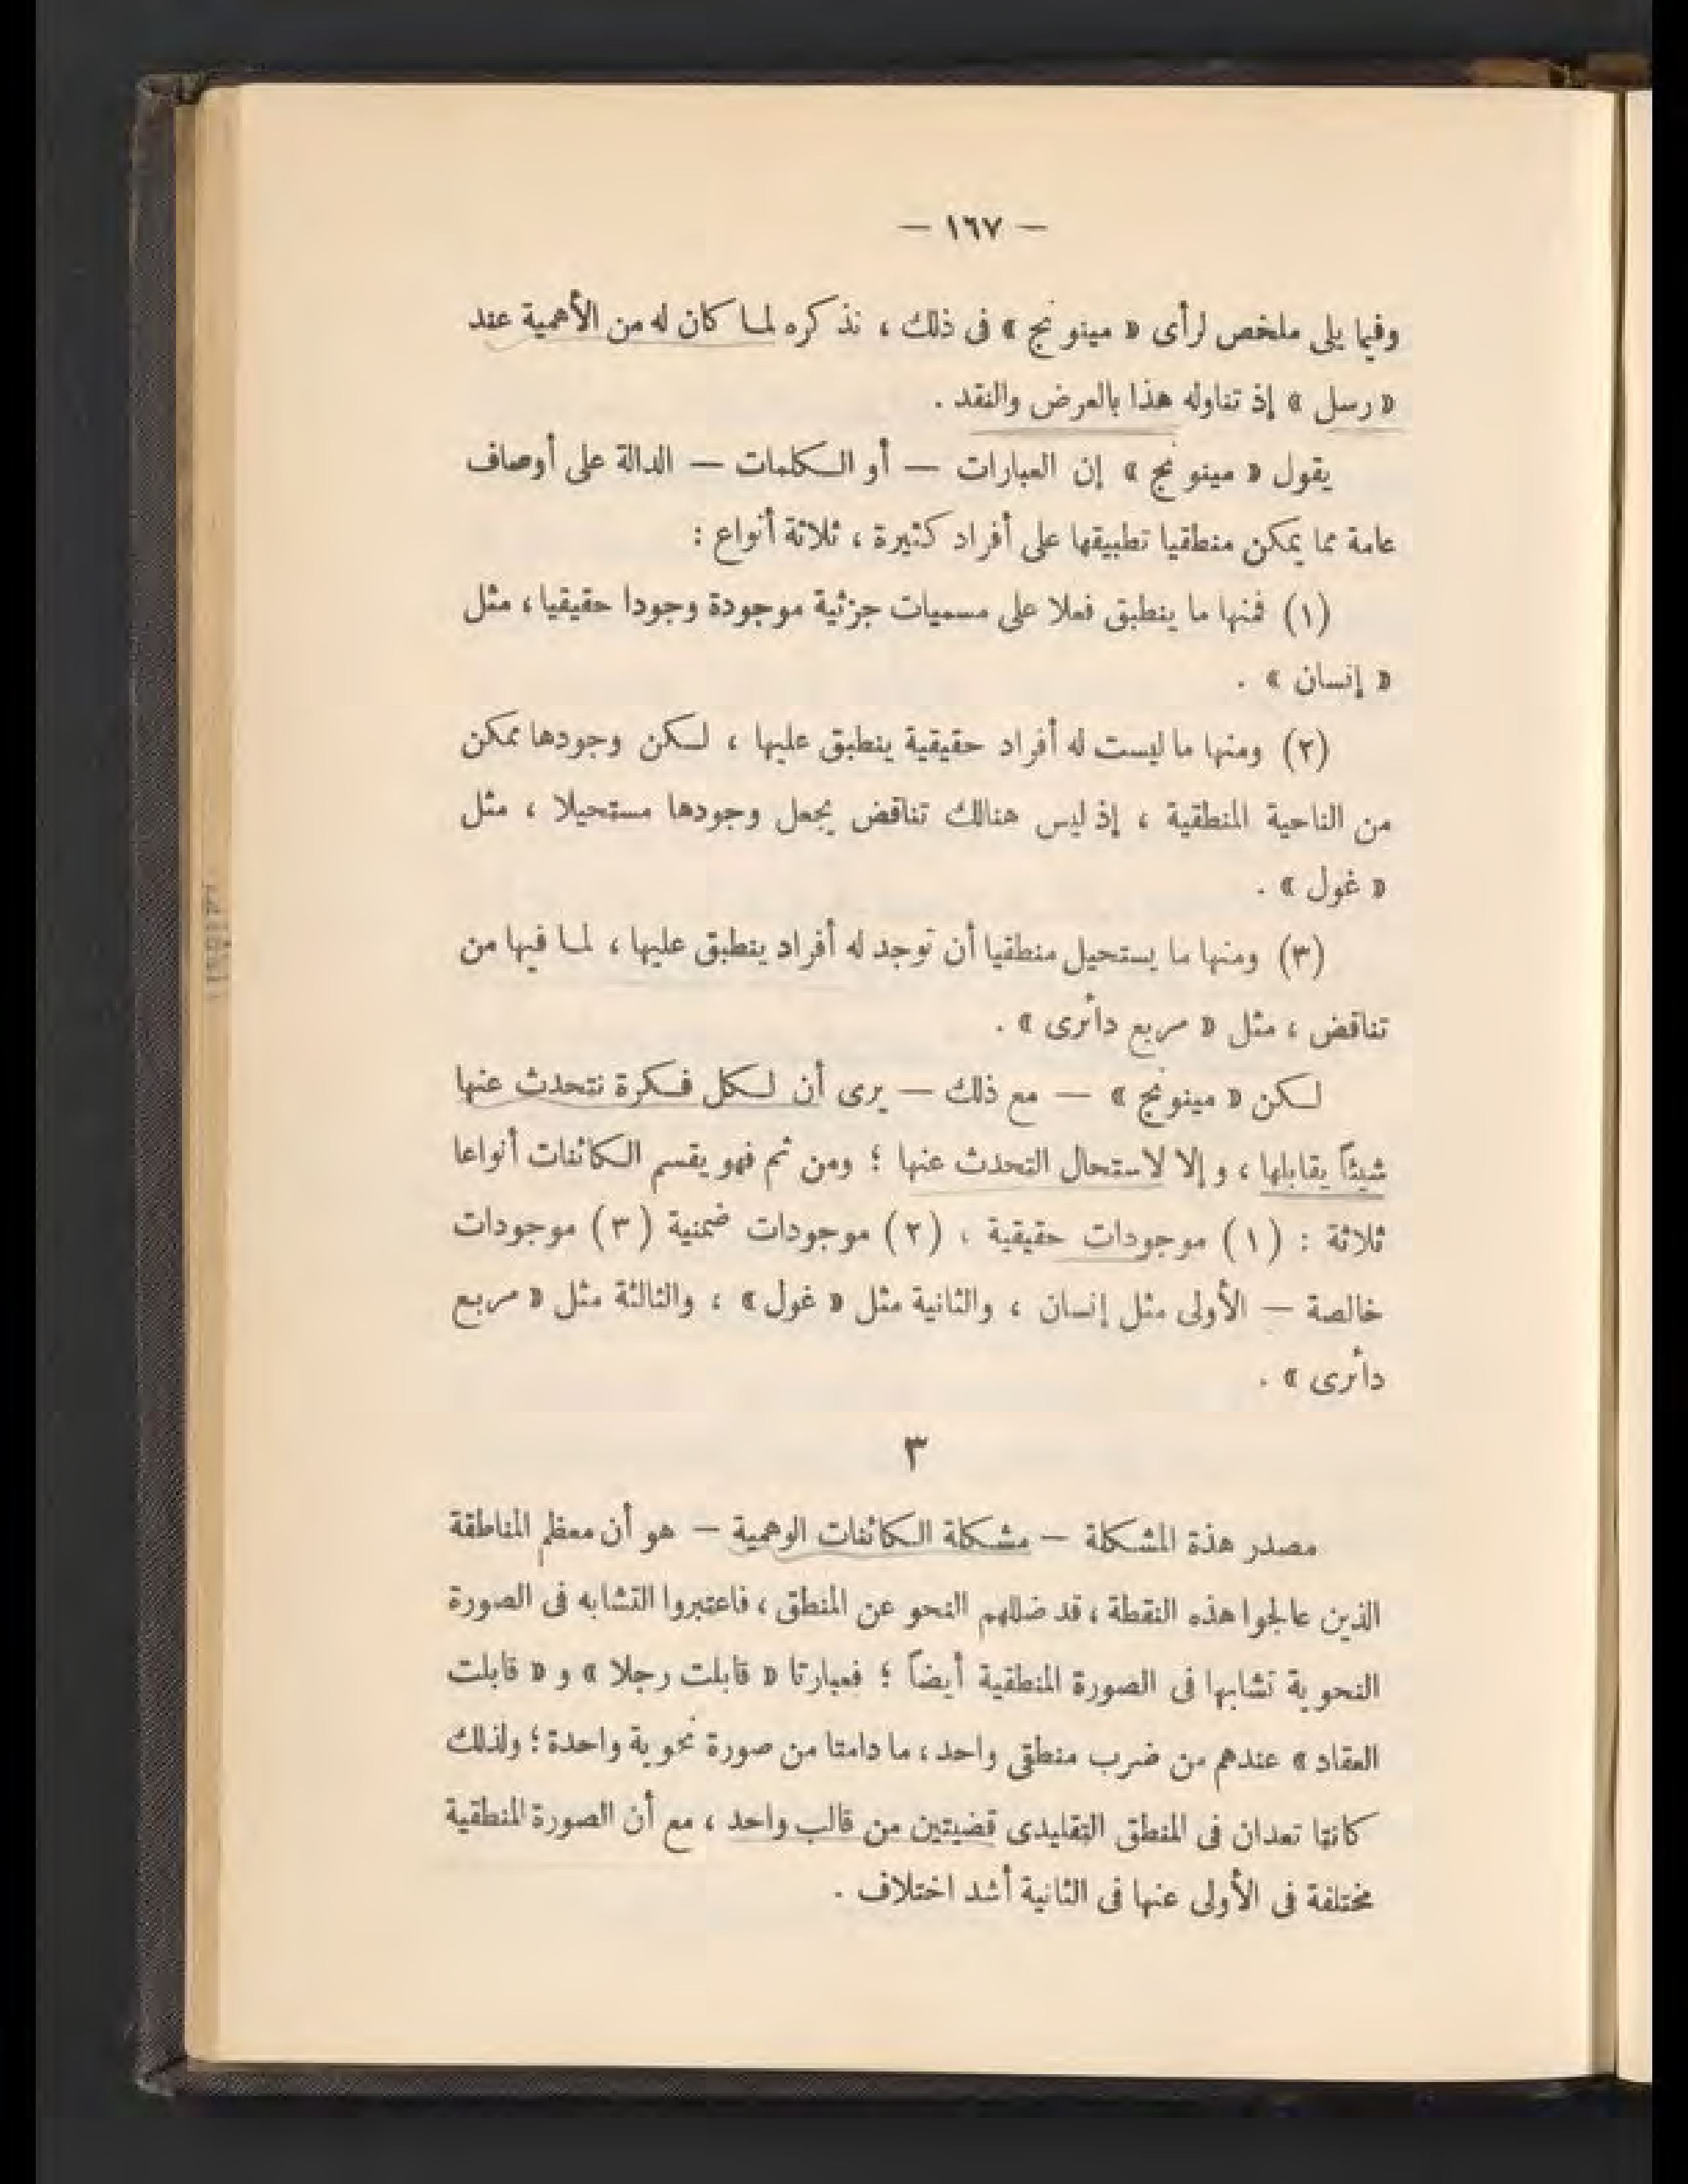 — ١٦٧ —
وفيما يلى ملخص لرأى « مينونج » فى ذلك ، نذكره لما كان له من الأهمية عند
« رسل » إذ تناوله هذا بالعرض والنقد .
يقول « مينونج » إن العبارات — أو الكلمات — الدالة على أوصاف
عامة مما يمكن منطقيا تطبيقها على أفراد كثيرة ، ثلاثة أنواع :
(١) فمنها ما ينطبق فعلا على مسميات جزئية موجودة وجودا حقيقيا ، مثل
« إنسان » .
(٢) ومنها ما ليست له أفراد حقيقية ينطبق عليها ، لكن وجودها ممكن
من الناحية المنطقية ، إذ ليس هنالك تناقض يجعل وجودها مستحيلا ، مثل
« غول » .
(٣) ومنها ما يستحيل منطقيا أن توجد له أفراد ينطبق عليها ، لما فيها من
تناقض ، مثل « مربع دائرى » .
لكن « مينونج » — مع ذلك — يرى أن لكل فكرة نتحدث عنها
شيئاً يقابلها ، وإلا لاستحال التحدث عنها ؛ ومن ثم فهو يقسم الكائنات أنواعا
ثلاثة : (١) موجودات حقيقية ، (٢) موجودات ضمنية (٣) موجودات
خالصة — الأولى مثل إنسان ، والثانية مثل « غول » ، والثالثة مثل « مربع
دائرى » .
٣
مصدر هذة المشكلة — مشكلة الكائنات الوهمية — هو أن معظم المناطقة
الذين عالجوا هذه النقطة ، قد ضللهم النحو عن المنطق ، فاعتبروا التشابه فى الصورة
النحوية تشابها فى الصورة المنطقية أيضاً ؛ فعبارتا « قابلت رجلا » و « قابلت
العقاد » عندهم من ضرب منطقى واحد ، ما دامتا من صورة نحوية واحدة ؛ ولذلك
كانتا تعدان فى المنطق التقليدى قضيتين من قالب واحد ، مع أن الصورة المنطقية
مختلفة فى الأولى عنها فى الثانية أشد اختلاف .